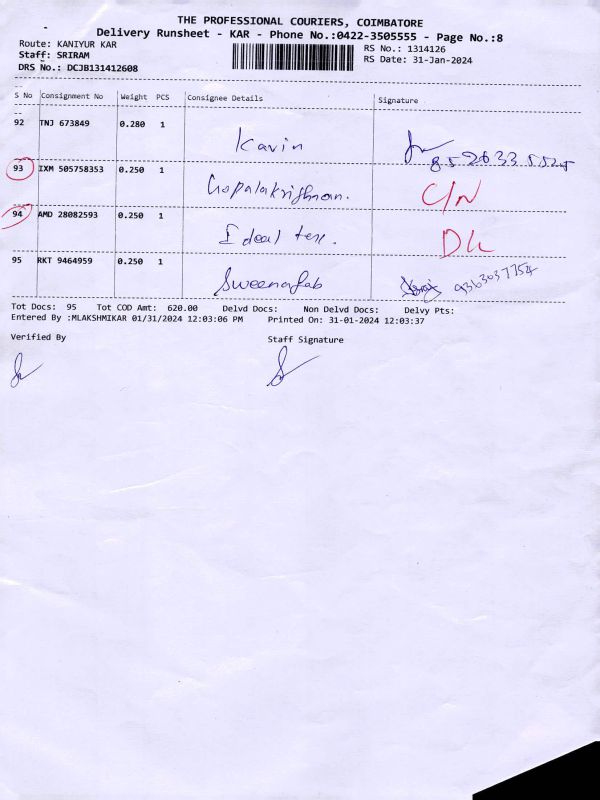 THE PROFESSIONAL COURIERS, COIMBATORE
Delivery Runsheet - KAR - Phone No.:0422-3505555 - Page No.:8
Route: KANIYUR KAR
RS No.: 1314126
Staff: SRIRAM
RS Date: 31-Jan-2024
DRS No.: DCJB131412608
S No Consignment No Weight PCS Consignee Details Signature
92 TNJ 673849 0.280 1 Kavin
93 IXM 505758353 0.250 1 Gopalakrishnan. C/N
94 AMD 28082593 0.250 1 Ideal tex. DL
95 RKT 9464959 0.250 1 Sweenafab 9363037754
Tot Docs: 95 Tot COD Amt: 620.00 Delvd Docs: Non Delvd Docs: Delvy Pts:
Entered By :MLAKSHMIKAR 01/31/2024 12:03:06 PM Printed On: 31-01-2024 12:03:37
Verified By Staff Signature